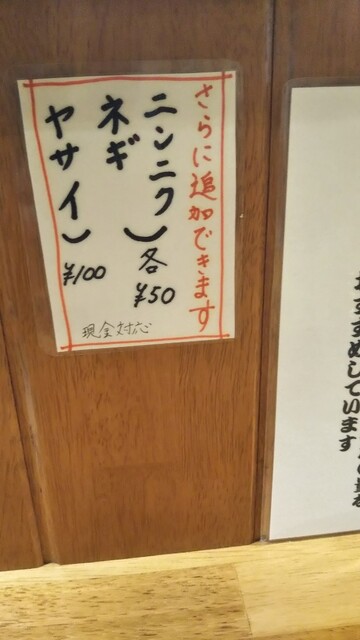 さらに追加できます
ニンニク
ネギ
各
¥50
ヤサイ
¥100
現金対応
おすすめしています